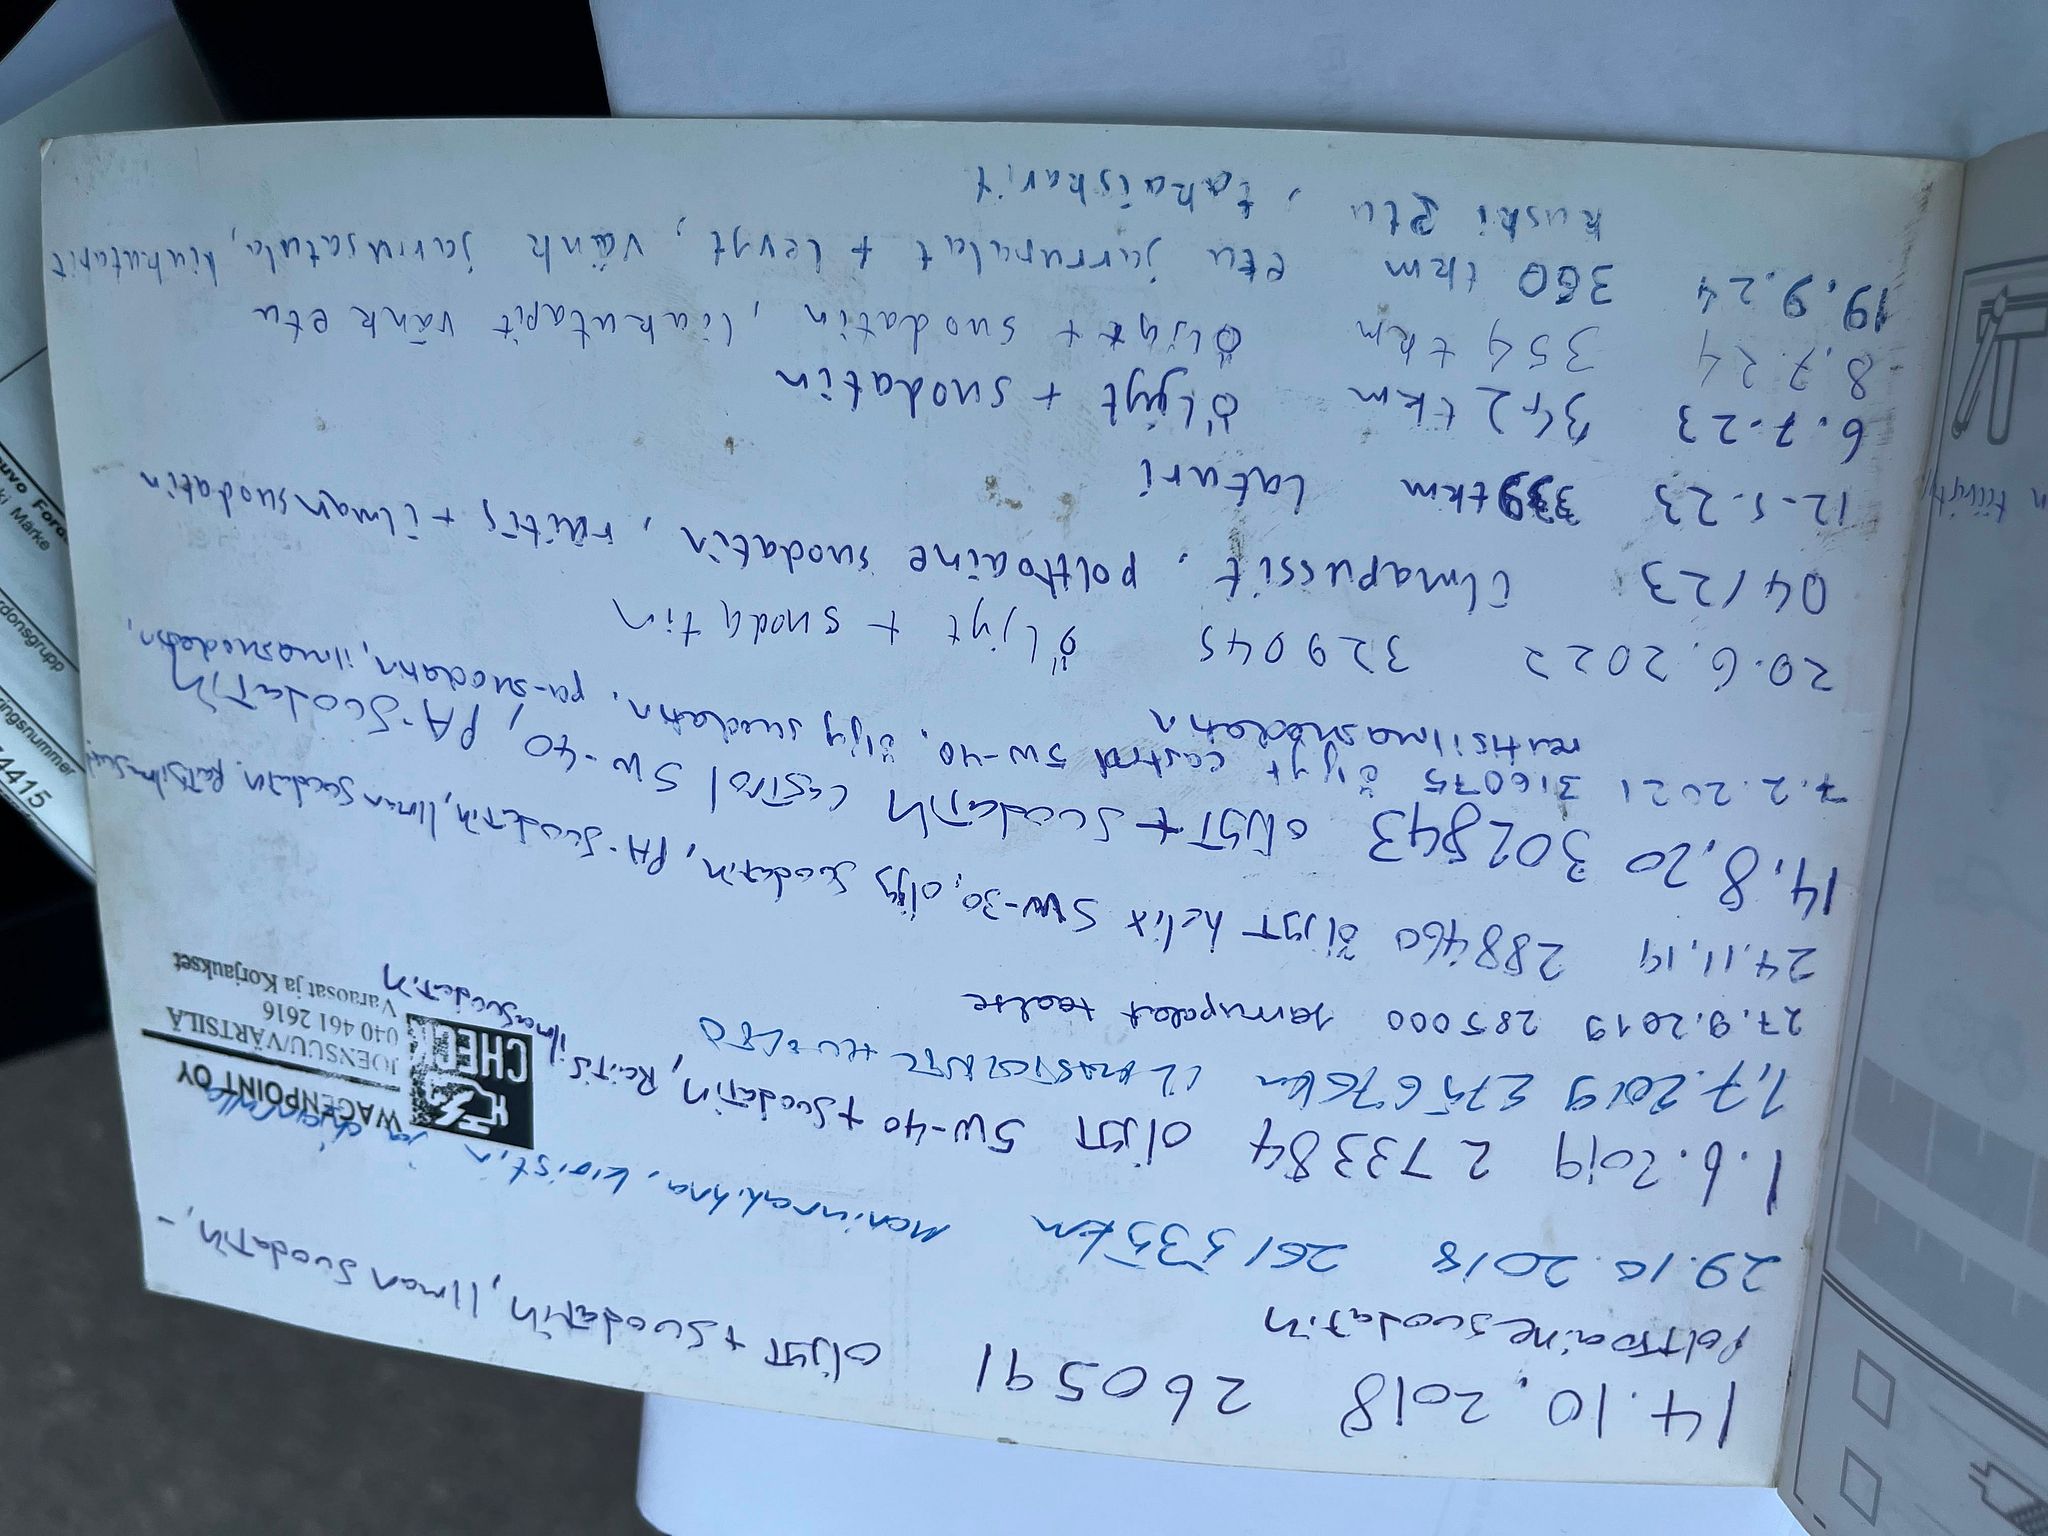 14.10.2018 260591 öljyt + suodatin, ilman suodatin, -
Polttoainesuodatin
29.10.2018 261535km moninnakihna, kiristin ja ohjainrulla
WAGENPOINT OY
JOENSUU/VÄRTSILÄ
040 461 2616
Varaosat ja Korjaukset
CHECK
1.6.2019 273384 öljyt 5W-40 + suodatin, Raitisilmasuodatin
1,7.2019 275676km ILMASTOINTI HUOLTO
27.9.2019 285000 jarrupalat taakse
24.11.19 288460 öljyt helix 5W-30, öljy suodatin, PA-suodatin, ilman suodatin, Raitisilmasuod.
14.8.20 302843 öljyt + suodatin castrol 5W-40, PA-suodatin
7.2.2021 316075 öljyt castrol 5w-40, öljysuodatin, pa-suodatin, ilmasuodatin,
raitisilmasuodatin
20.6.2022 329045 öljyt + suodatin
04/23 ilmapussit, polttoaine suodatin, raitis + ilmansuodatin
12.5.23 339tkm Laturi
6.7.23 342 tkm öljyt + suodatin
8.7.24 354 tkm öljyt + suodatin, liukutapit vänk etu
19.9.24 360 tkm etu jarrupalat + levyt, vänk jarrusatula, liukutapit
kuski etu, takaiskarit
uvo
ki Märke
ringsnummer
4415